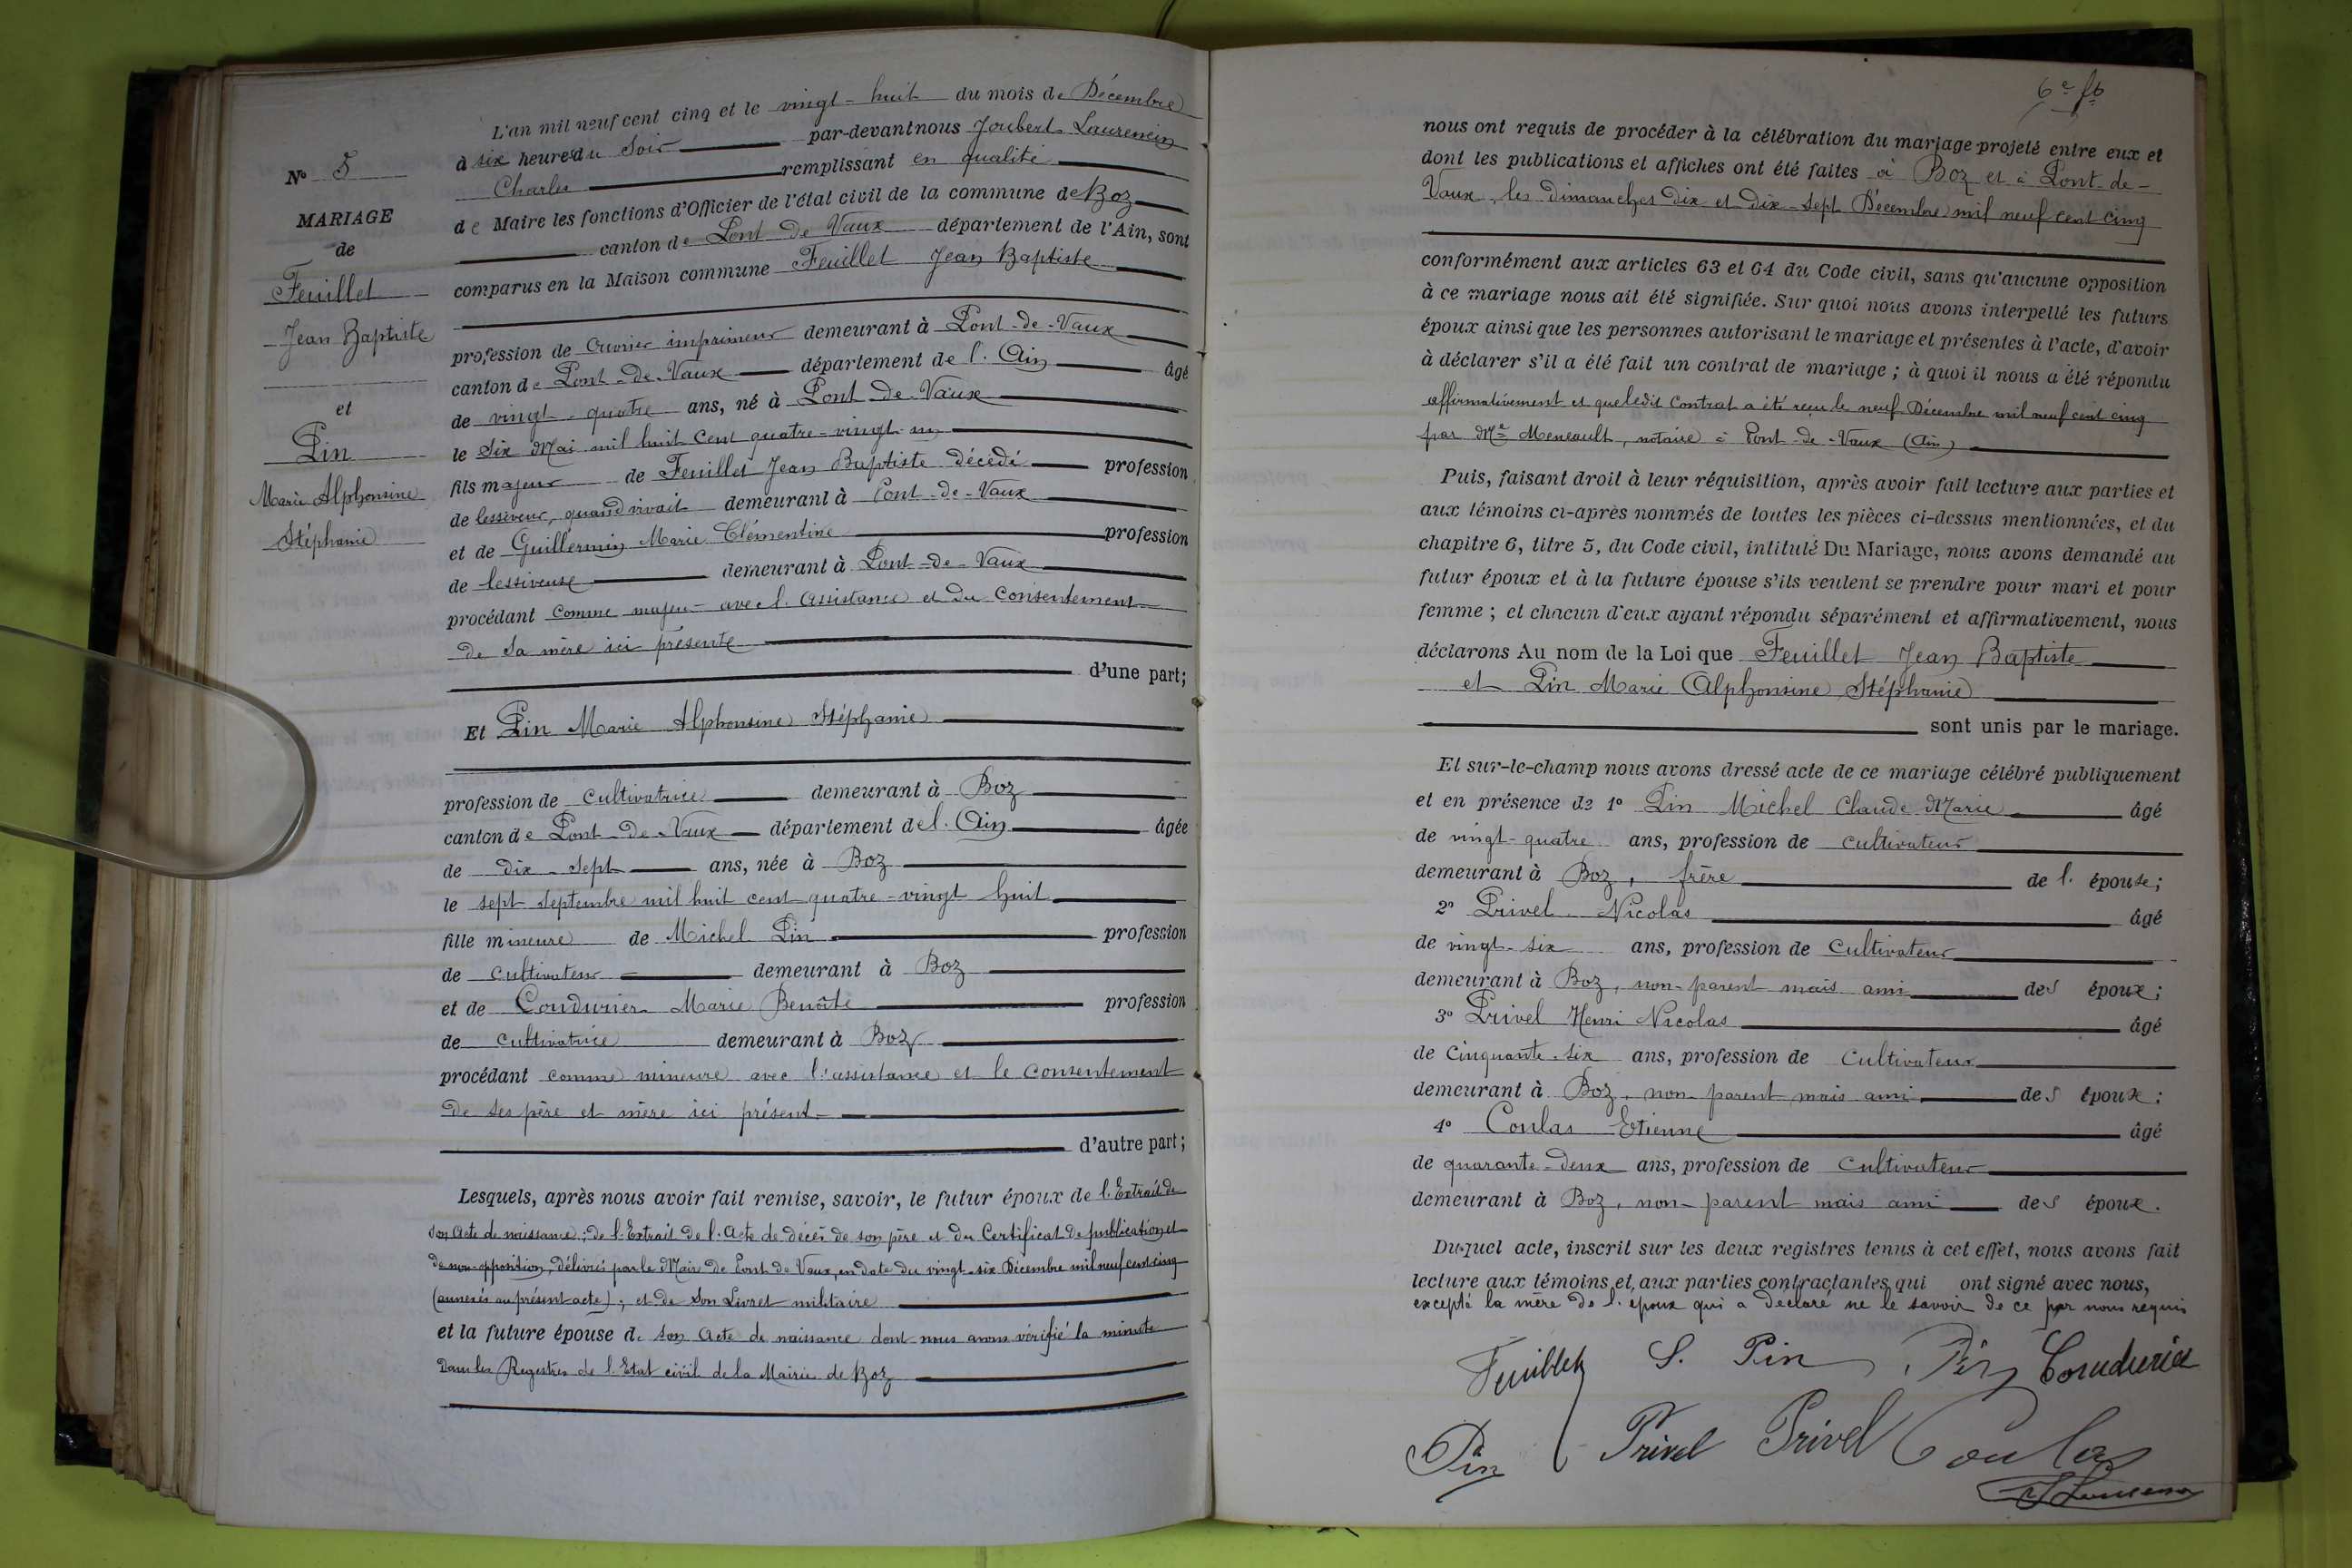 L'an mil neuf cent cinq et le vingt-huit du mois de Décembre
à six heures du Soir par-devant nous Joubert Laurencin
Charles remplissant en qualité
de Maire les fonctions d'Officier de l'état civil de la commune de Boz
canton de Pont de Vaux département de l'Ain, sont
comparus en la Maison commune Feuillet Jean Baptiste
profession de ouvrier imprimeur demeurant à Pont-de-Vaux
canton de Pont-de-Vaux département de l'Ain âgé
de vingt-quatre ans, né à Pont-de-Vaux
le Six Mai mil huit cent quatre-vingt-un
fils majeur de Feuillet Jean Baptiste décédé profession
de lessiveur, quand vivait demeurant à Pont-de-Vaux
et de Guillermin Marie Clémentine profession
de lessiveuse demeurant à Pont-de-Vaux
procédant comme majeur avec l'assistance et du consentement
de sa mère ici présente
d'une part;
Et Pin Marie Alphonsine Stéphanie
profession de cultivatrice demeurant à Boz
canton de Pont-de-Vaux département de l'Ain âgée
de dix-sept ans, née à Boz
le sept Septembre mil huit cent quatre-vingt huit
fille mineure de Michel Pin profession
de cultivateur demeurant à Boz
et de Coudurier Marie Benoîte profession
de cultivatrice demeurant à Boz
procédant comme mineure avec l'assistance et le consentement
de ses père et mère ici présent
d'autre part;
Lesquels, après nous avoir fait remise, savoir, le futur époux de l'Extrait de
son acte de naissance; de l'Extrait de l'acte de décès de son père et du Certificat de publication et
de non-opposition, délivrés par le Maire de Pont de Vaux, en date du vingt-six Décembre mil neuf cent cinq
(annexés au présent acte); et de Son Livret militaire
et la future épouse de son acte de naissance dont nous avons vérifié la minute
dans les Registres de l'Etat civil de la Mairie de Boz
N° 5
MARIAGE
de
Feuillet
Jean Baptiste
et
Pin
Marie Alphonsine
Stéphanie
6e fo
nous ont requis de procéder à la célébration du mariage projeté entre eux et
dont les publications et affiches ont été faites à Boz et à Pont-de-
Vaux, les dimanches dix et dix-sept Décembre mil neuf cent cinq
conformément aux articles 63 et 64 du Code civil, sans qu'aucune opposition
à ce mariage nous ait été signifiée. Sur quoi nous avons interpellé les futurs
époux ainsi que les personnes autorisant le mariage et présentes à l'acte, d'avoir
à déclarer s'il a été fait un contrat de mariage; à quoi il nous a été répondu
affirmativement et que ledit Contrat a été reçu le neuf Décembre mil neuf cent cinq
par Me Meneault, notaire à Pont-de-Vaux (Ain)
Puis, faisant droit à leur réquisition, après avoir fait lecture aux parties et
aux témoins ci-après nommés de toutes les pièces ci-dessus mentionnées, et du
chapitre 6, titre 5, du Code civil, intitulé Du Mariage, nous avons demandé au
futur époux et à la future épouse s'ils veulent se prendre pour mari et pour
femme; et chacun d'eux ayant répondu séparément et affirmativement, nous
déclarons Au nom de la Loi que Feuillet Jean Baptiste
et Pin Marie Alphonsine Stéphanie
sont unis par le mariage.
Et sur-le-champ nous avons dressé acte de ce mariage célébré publiquement
et en présence de 1° Pin Michel Claude Marie âgé
de vingt-quatre ans, profession de cultivateur
demeurant à Boz, frère de l'épouse;
2° Privel Nicolas âgé
de vingt-six ans, profession de cultivateur
demeurant à Boz, non-parent mais ami des époux;
3° Privel Henri Nicolas âgé
de cinquante-six ans, profession de cultivateur
demeurant à Boz, non-parent mais ami des époux;
4° Coulas Etienne âgé
de quarante-deux ans, profession de cultivateur
demeurant à Boz, non-parent mais ami des époux.
Duquel acte, inscrit sur les deux registres tenus à cet effet, nous avons fait
lecture aux témoins et aux parties contractantes qui ont signé avec nous,
excepté la mère de l'époux qui a déclaré ne le savoir de ce par nous requis
Feuillet S. Pin Pin Couduriér
Pin Privel Privel Coulas